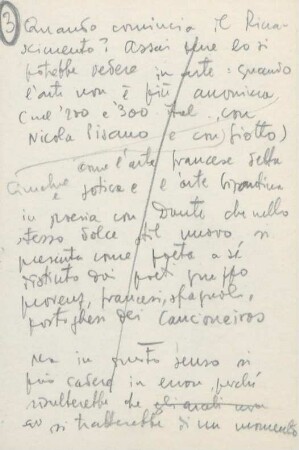 3
Quando comincia il Rina-
scimento? Assai bene lo si
potrebbe vedere in arte: quando
l'arte non è più anonima
(nel '200 e '300 ital. con
Nicola Pisano e con Giotto)
come l'arte francese della
gotica e l'arte bizantina
in poesia con Dante che nello
stesso dolce stil nuovo si
presenta come poeta a sé
distinto dai poeti
provenz, francesi, spagnoli,
portoghesi dei cancioneiros
Ma in questo senso si
può cadere in errore, perché
risulterebbe che
si tratterebbe di un momento